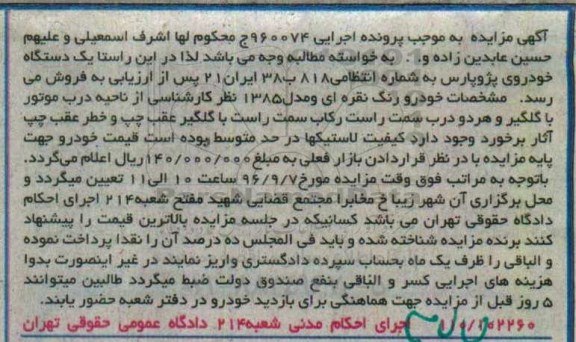 آگهی مزایده به موجب پرونده اجرایی ۹۶۰۰۷۴ج محکوم لها اشرف اسمعیلی و علیهم
حسین عابدین زاده و. به خواسته مطالبه وجه می باشد لذا در این راستا یک دستگاه
خودروی پژوپارس به شماره انتظامی۸۱۸ ب۳۸ ایران۲۱ پس از ارزیابی به فروش می
رسد. مشخصات خودرو رنگ نقره ای ومدل۱۳۸۵ نظر کارشناسی از ناحیه درب موتور
با گلگیر و هردو درب سمت راست رکاب سمت راست با گلگیر عقب چپ و خطر عقب چپ
آثار برخورد وجود دارد کیفیت لاستیکها در حد متوسط بوده است قیمت خودرو جهت
پایه مزایده با در نظر قراردادن بازار فعلی به مبلغ ۱۴۰/۰۰۰/۰۰۰ریال اعلام می‌گردد.
باتوجه به مراتب فوق وقت مزایده مورخ۹۶/۹/۷ ساعت ۱۰ الی۱۱ تعیین میگردد و
محل برگزاری آن شهر زیبا خ مخابرا مجتمع قضایی شهید مفتح شعبه۲۱۴ اجرای احکام
دادگاه حقوقی تهران می باشد کسانیکه در جلسه مزایده بالاترین قیمت را پیشنهاد
کنند برنده مزایده شناخته شده و باید فی المجلس ده درصد آن را نقدا پرداخت نموده
و الباقی را ظرف یک ماه بحساب سپرده دادگستری واریز نمایند در غیر اینصورت بدوا
هزینه های اجرایی کسر و الباقی بنفع صندوق دولت ضبط میگردد طالبین میتوانند
۵ روز قبل از مزایده جهت هماهنگی برای بازدید خودرو در دفتر شعبه حضور یابند.
۱۰۲۲۶۰/ اجرای احکام مدنی شعبه۲۱۴ دادگاه عمومی حقوقی تهران